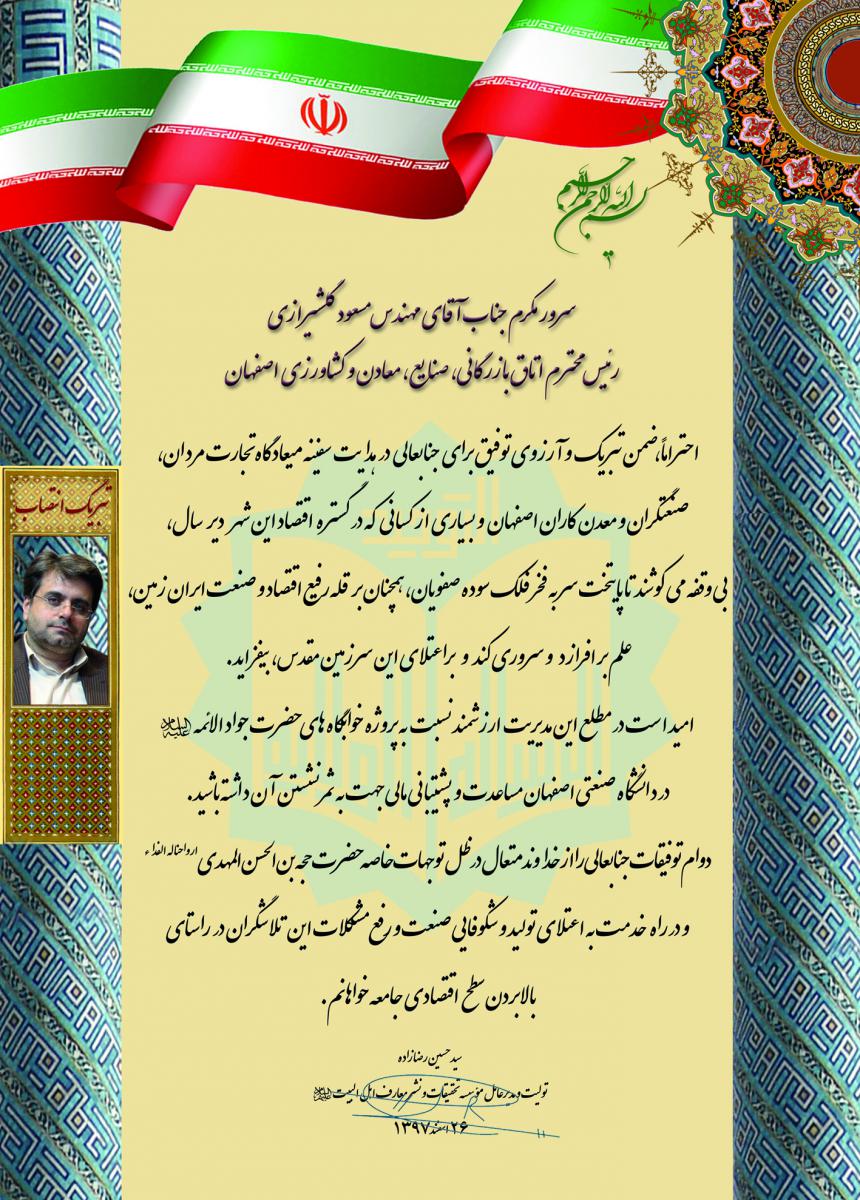 بسم الله الرحمن الرحیم
سرور مکرم جناب آقای مهندس مسعود گلشیرازی
رئیس محترم اتاق بازرگانی، صنایع، معادن و کشاورزی اصفهان
احتراماً، ضمن تبریک و آرزوی توفیق برای جنابعالی در هدایت سفینه میعادگاه تجارت مردان،
صنعتگران و معدن کاران اصفهان و بسیاری از کسانی که در گستره اقتصاد این شهر دیر سال،
بی وقفه می کوشند تا پایتخت سر به فخر فلک سوده صفویان، همچنان بر قله رفیع اقتصاد و صنعت ایران زمین،
علم برافرازد و سروری کند و بر اعتلای این سرزمین مقدس، بیفزاید.
تبریک انتصاب
امید است در مطلع این مدیریت ارزشمند نسبت به پروژه خوابگاه های حضرت جواد الائمه علیه السلام
در دانشگاه صنعتی اصفهان مساعدت و پشتیبانی مالی جهت به ثمر نشستن آن داشته باشید.
دوام توفیقات جنابعالی را از خداوند متعال در ظل توجهات خاصه حضرت حجه بن الحسن المهدی ارواحناله الفداء
و در راه خدمت به اعتلای تولید و شکوفایی صنعت و رفع مشکلات این تلاشگران در راستای
بالا بردن سطح اقتصادی جامعه خواهانم.
سید حسین رضازاده
تولیت و مدیرعامل مؤسسه تحقیقات و نشر معارف اهل البیت علیهم السلام
۲۶ اسفند ۱۳۹۷